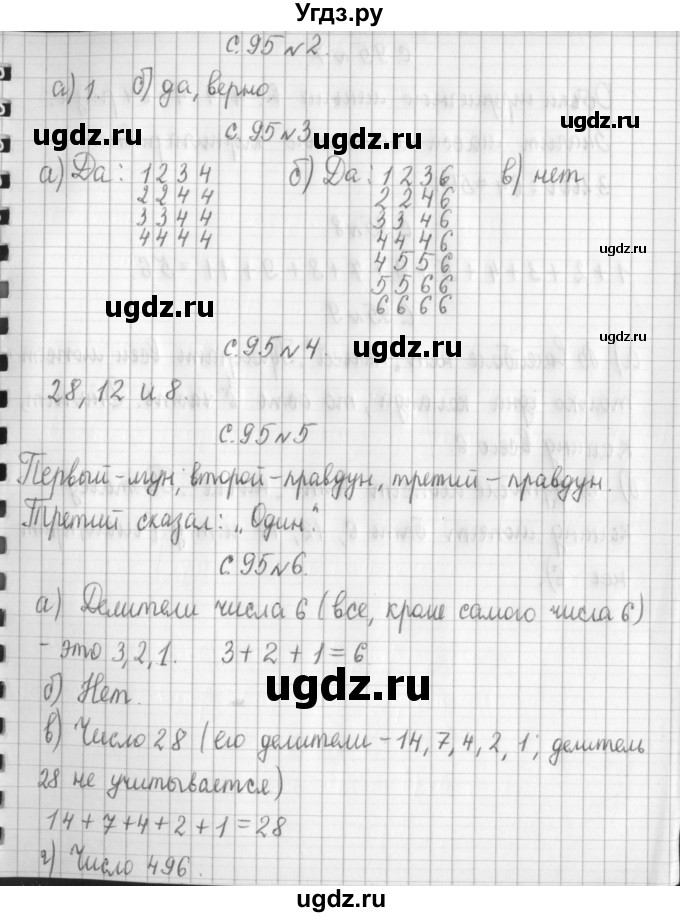 Угдз.ру
с.95 №2.
а) 1. б) да, верно
ugdz.ru ugdz.ru
с.95 №3
а) Да: 1 2 3 4 б) Да: 1 2 3 6 в) нет
2 2 4 4 2 2 4 6
3 3 4 4 3 3 4 6
4 4 4 4 4 4 4 6
ugdz.ru
4 5 5 6
5 5 6 6
6 6 6 6
ugdz.ru ugdz.ru
с.95 №4.
ugdz.ru ugdz.ru
28, 12 и 8
с.95 №5
Первый - лгун, второй - правдун, третий - правдун.
Третий сказал: „Один."
с.95 №6.
а) Делители числа 6 (все, кроме самого числа 6)
- это 3, 2, 1. 3 + 2 + 1 = 6
ugdz.ru
б) Нет.
в) Число 28 (его делители - 14, 7, 4, 2, 1; делитель
28 не учитывается)
14 + 7 + 4 + 2 + 1 = 28
г) Число 496.
ugdz.ru ugdz.ru
ugdz.ru